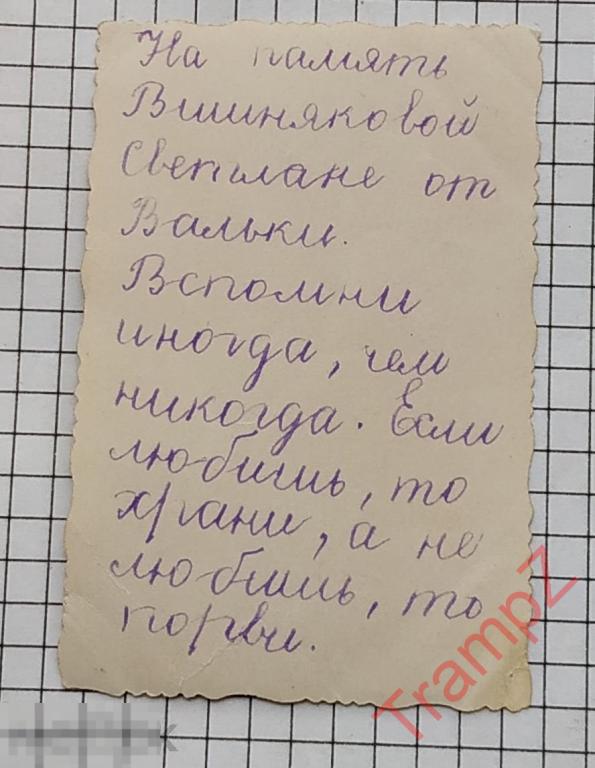 На память
Вишняковой
Светлане от
Вальки.
Вспомни
иногда, чем
никогда. Если
любишь, то
храни, а не
любишь, то
порви.
TrampZ